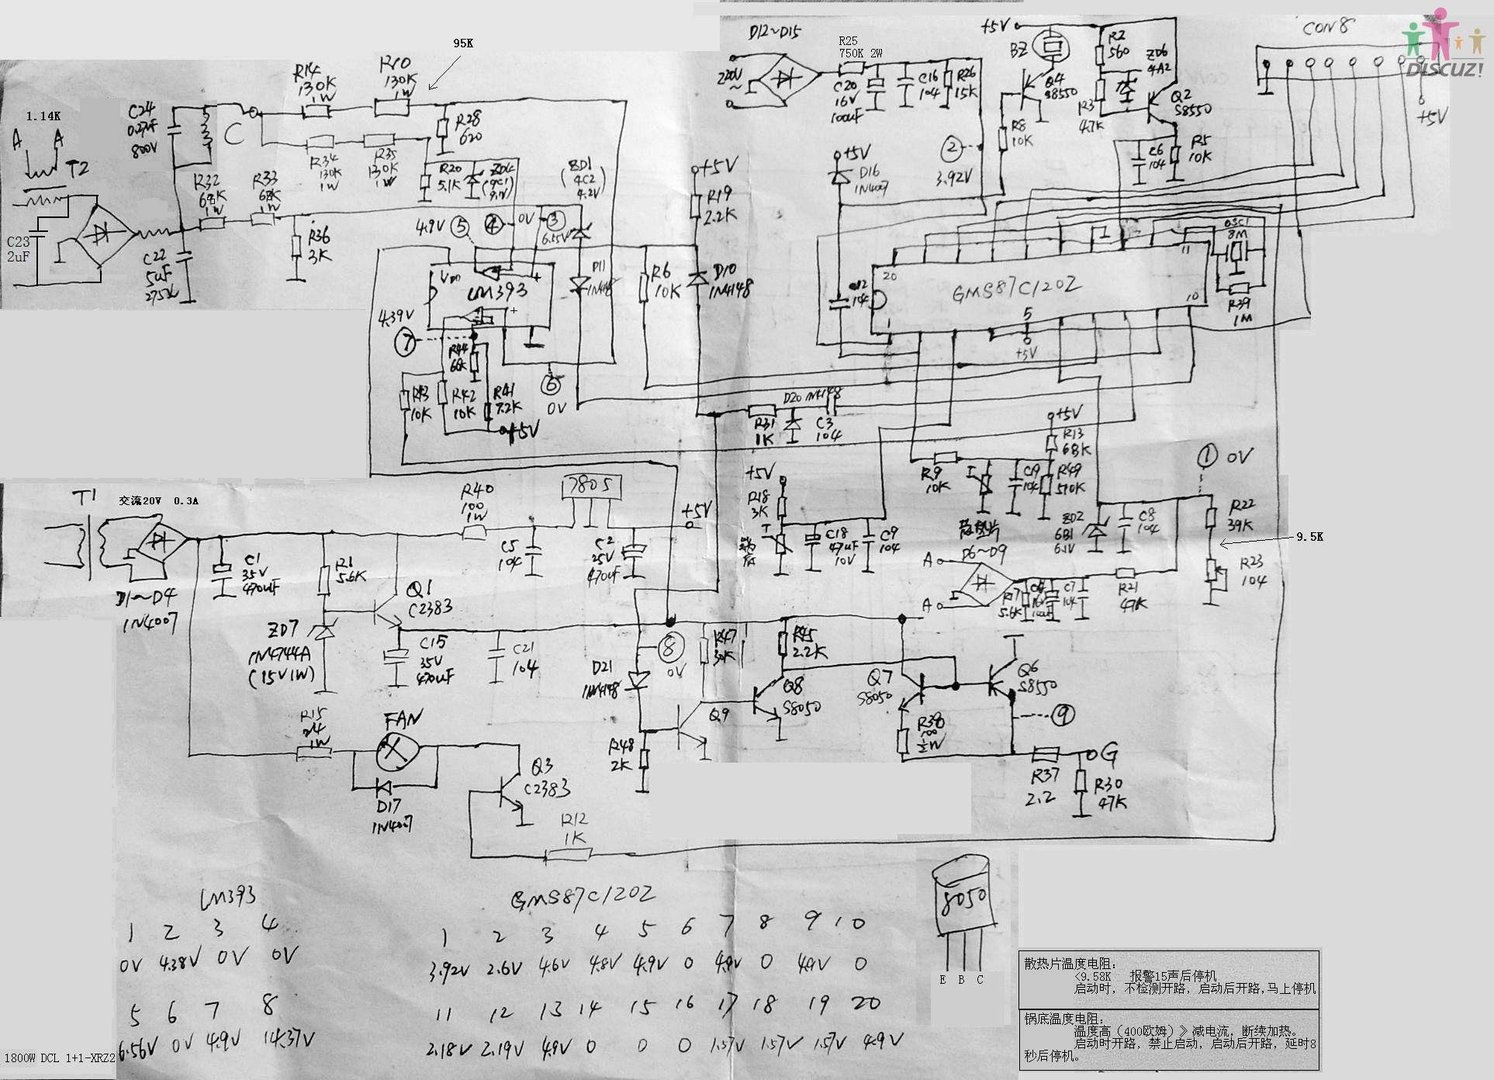 95K
R25
750K 2W
D12~D15
+5V
BZ
R2
560
ZD6
4A2
CON8
DISCUZ!
R14
130K
1W
R10
130K
1W
220V
~
C20
16V
100uF
C16
104
R26
15K
Q4
S8550
R3
4.7K
Q2
S8550
+5V
1.14K
A
A
T2
C24
0.27uF
800V
C
R28
620
R34
130K
1W
R35
130K
1W
R8
10K
C6
104
R5
10K
②
3.92V
+5V
D16
1N4007
R32
68K
1W
R33
68K
1W
R20
5.1K
BD1
(4C2
4.2V)
+5V
R19
2.2K
C23
2uF
C22
5uF
275V
R36
3K
4.9V
⑤
④
0V
③
OSC1
8M
VDD
LM393
D11
1N4148
R6
10K
D10
1N4148
C12
104
20
GMS87C1202
11
1
5
10
+5V
R39
1M
4.39V
⑦
R44
68K
R43
10K
R42
10K
R41
7.2K
+5V
⑥
0V
D20 1N4148
R31
1K
C3
104
+5V
R13
68K
R9
10K
C19
104
R49
510K
① 0V
T1
交流20V 0.3A
D1~D4
1N4007
C1
35V
470uF
R1
5.6K
R40
100
1W
7805
C5
104
C2
25V
470uF
+5V
+5V
R18
3K
T
C18
47uF
10V
C9
104
散热片
D6~D9
A
A
ZD2
6B1
6.1V
C8
104
R22
39K
9.5K
R23
104
R17
5.6K
C7
104
R21
47K
Q1
C2383
ZD7
1N4744A
(15V1W)
C15
35V
470uF
C21
104
D21
1N4148
⑧
0V
R47
R45
2.2K
Q8
S8050
Q9
Q7
S8050
Q6
S8550
R38
100
½W
⑨
R48
2K
R37
2.2
G
R30
47K
R15
24
1W
FAN
D17
1N4007
Q3
C2383
R12
1K
LM393
1 2 3 4
0V 4.38V 0V 0V
5 6 7 8
6.56V 0V 4.9V 14.37V
GMS87C1202
1 2 3 4 5 6 7 8 9 10
3.92V 2.6V 4.6V 4.8V 4.9V 0 4.9V 0 4.9V 0
11 12 13 14 15 16 17 18 19 20
2.18V 2.19V 4.9V 0 0 0 1.57V 1.57V 1.57V 4.9V
8050
E B C
1800W DCL 1+1-XRZ2
散热片温度电阻:
<9.58K 报警15声后停机
启动时，不检测开路，启动后开路,马上停机
锅底温度电阻:
温度高（400欧姆）》减电流，断续加热。
启动时开路，禁止启动，启动后开路，延时8
秒后停机。